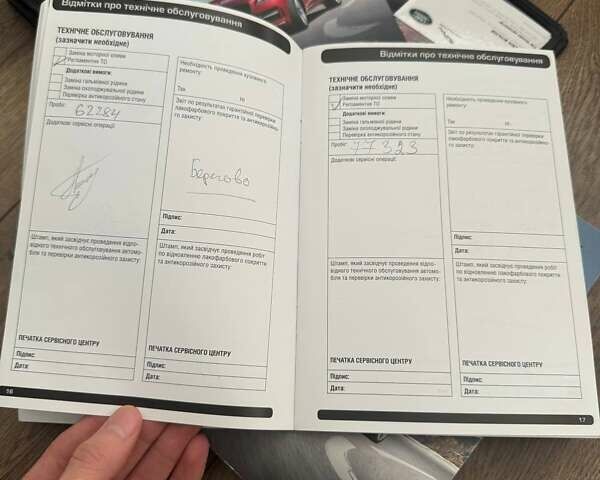 Відмітки про технічне обслуговування
ТЕХНІЧНЕ ОБСЛУГОВУВАННЯ
(зазначити необхідне)
Заміна моторної оливи
Регламентне ТО
Додаткові вимоги:
Заміна гальмівної рідини
Заміна охолоджувальної рідини
Перевірка антикорозійного стану
Пробіг: 62284
Додаткові сервісні операції:
Штамп, який засвідчує проведення відпо-
відного технічного обслуговування автомо-
біля та перевірки антикорозійного захисту:
ПЕЧАТКА СЕРВІСНОГО ЦЕНТРУ
Підпис:
Дата:
Необхідність проведення кузовного
ремонту:
Так
Ні
Звіт по результатах гарантійної перевірки
лакофарбового покриття та антикорозійно-
го захисту:
Берегово
Підпис:
Дата:
Штамп, який засвідчує проведення робіт
по відновленню лакофарбового покриття
та антикорозійного захисту:
ПЕЧАТКА СЕРВІСНОГО ЦЕНТРУ
Підпис:
Дата:
16
Відмітки про технічне обслуговування
ТЕХНІЧНЕ ОБСЛУГОВУВАННЯ
(зазначити необхідне)
Заміна моторної оливи
Регламентне ТО
Додаткові вимоги:
Заміна гальмівної рідини
Заміна охолоджувальної рідини
Перевірка антикорозійного стану
Пробіг: 77323
Додаткові сервісні операції:
Штамп, який засвідчує проведення відпо-
відного технічного обслуговування автомо-
біля та перевірки антикорозійного захисту:
ПЕЧАТКА СЕРВІСНОГО ЦЕНТРУ
Підпис:
Дата:
Необхідність проведення кузовного
ремонту:
Так
Ні
Звіт по результатах гарантійної перевірки
лакофарбового покриття та антикорозійно-
го захисту:
Підпис:
Дата:
Штамп, який засвідчує проведення робіт
по відновленню лакофарбового покриття
та антикорозійного захисту:
ПЕЧАТКА СЕРВІСНОГО ЦЕНТРУ
Підпис:
Дата:
17